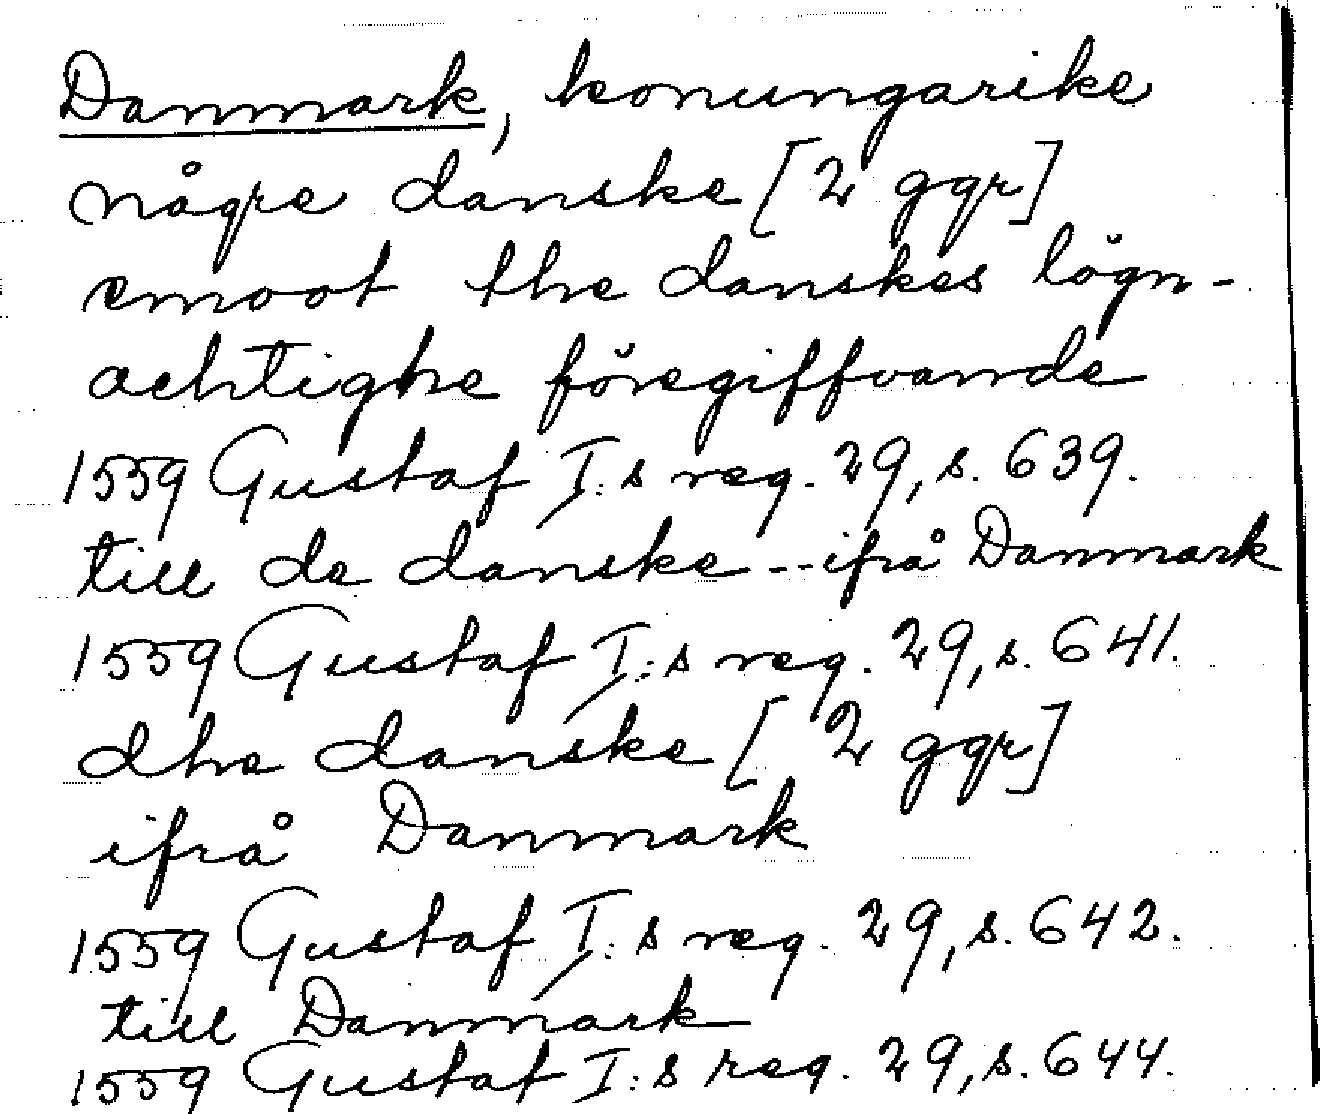 Danmark, konungarike
någre danske [2 ggr]
emoot the danskes lögn-
achtighe föregiffvande
1559 Gustaf I:s reg. 29, s. 639.
till de danske -- ifrå Danmark
1559 Gustaf I:s reg. 29, s. 641.
dhe danske [2 ggr]
ifrå Danmark
1559 Gustaf I:s reg. 29, s. 642.
till Danmark
1559 Gustaf I:s reg. 29, s. 644.